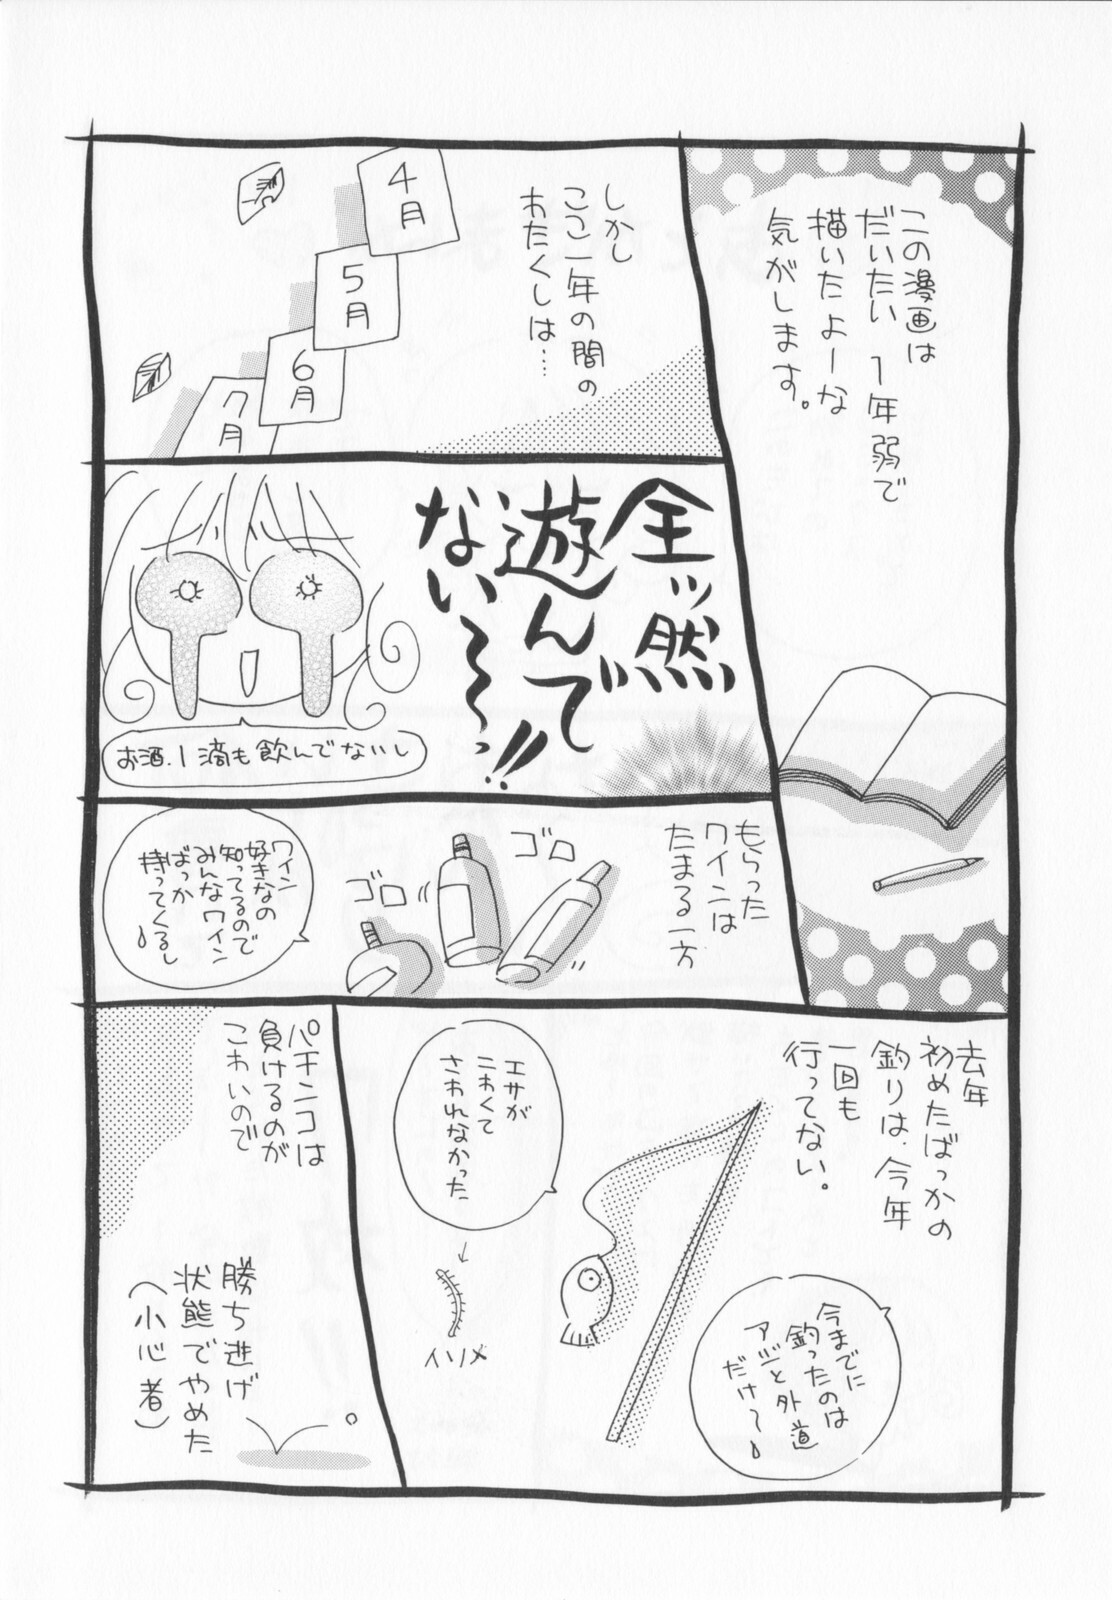 この漫画は
だいたい1年弱で
描いたよーな
気がします。
しかし
ここ一年の間の
わたくしは…
4月
5月
6月
7月
全ッ然
遊んで
ない〜〜っ!!
お酒.1滴も飲んでないし
もらった
ワインは
たまる一方
ゴロ
ゴロ
ワイン
好きなの
知ってるので
みんなワイン
ばっか
持ってくるし
去年
初めたばっかの
釣りは、今年
一回も
行ってない。
今までに
釣ったのは
アジと外道
だけ〜
エサが
こわくて
さわれなかった
イソメ
パチンコは
負けるのが
こわいので
勝ち逃げ
状態でやめた
(小心者)